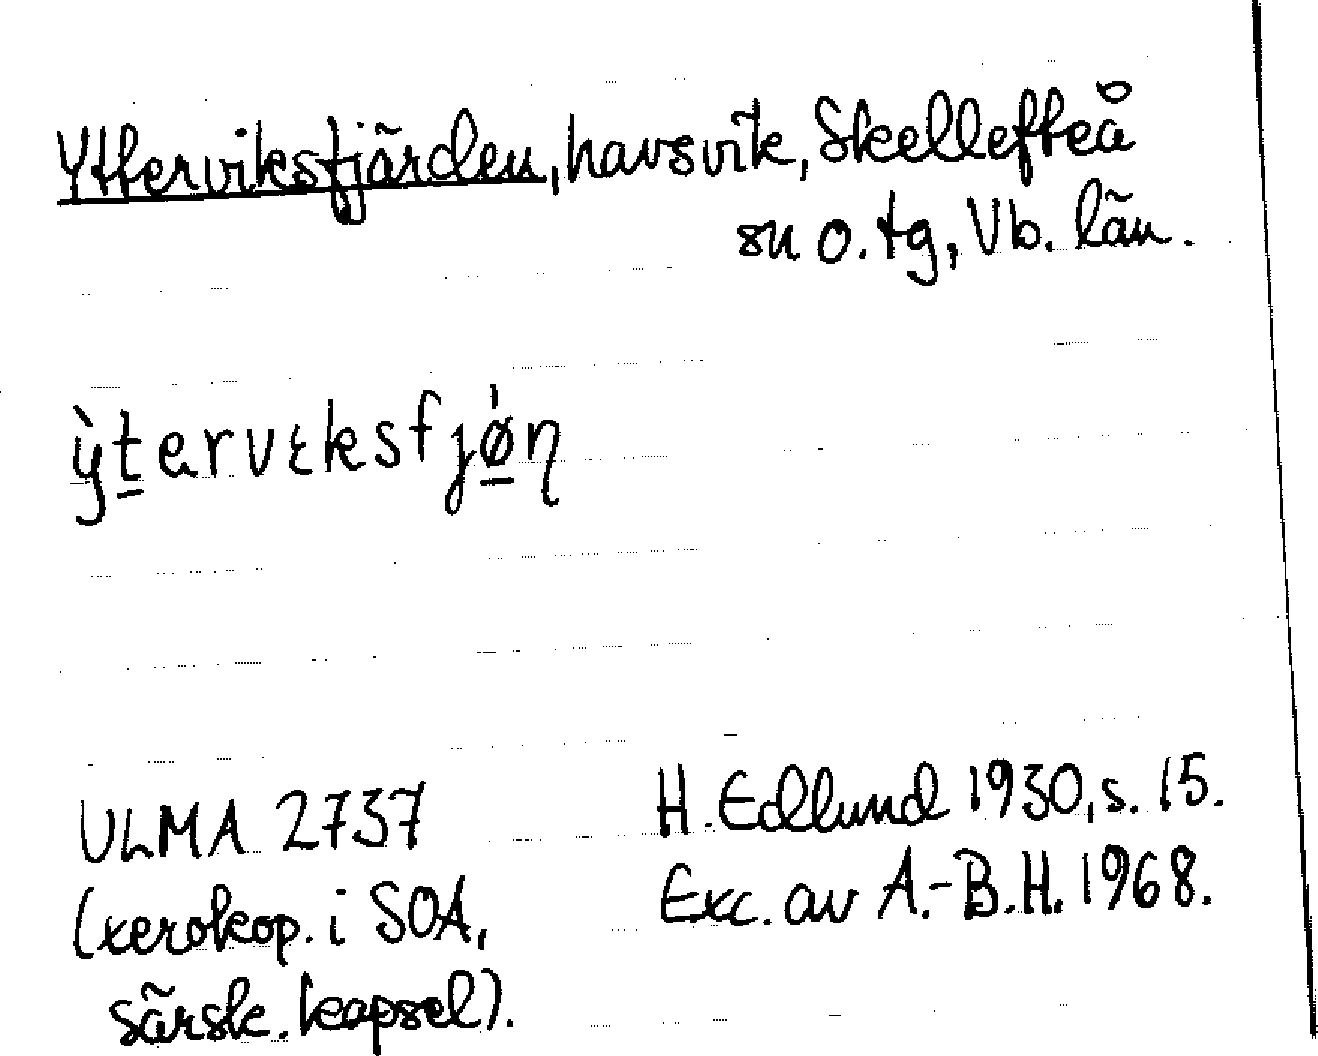 Ytterviksfjärden, havsvik, Skellefteå
sn o. tg, Vb. län.
ỳt̲ərvɩksfjø̲̍ɳ
ULMA 2737
(xerokop. i SOA,
särsk. kapsel).
H. Edlund 1930, s. 15.
Exc. av A.-B.H. 1968.